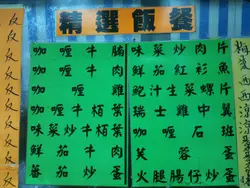 精選飯餐
咖喱牛腩
咖喱牛肉
咖喱雞
咖喱牛栢葉
味菜炒牛栢葉
鮮茄牛肉
蕃茄炒蛋
味菜炒肉片
鮮茄紅衫魚
豉汁生菜螺片
瑞士雞中翼
咖喱石班
芙蓉蛋
火腿腸仔炒蛋